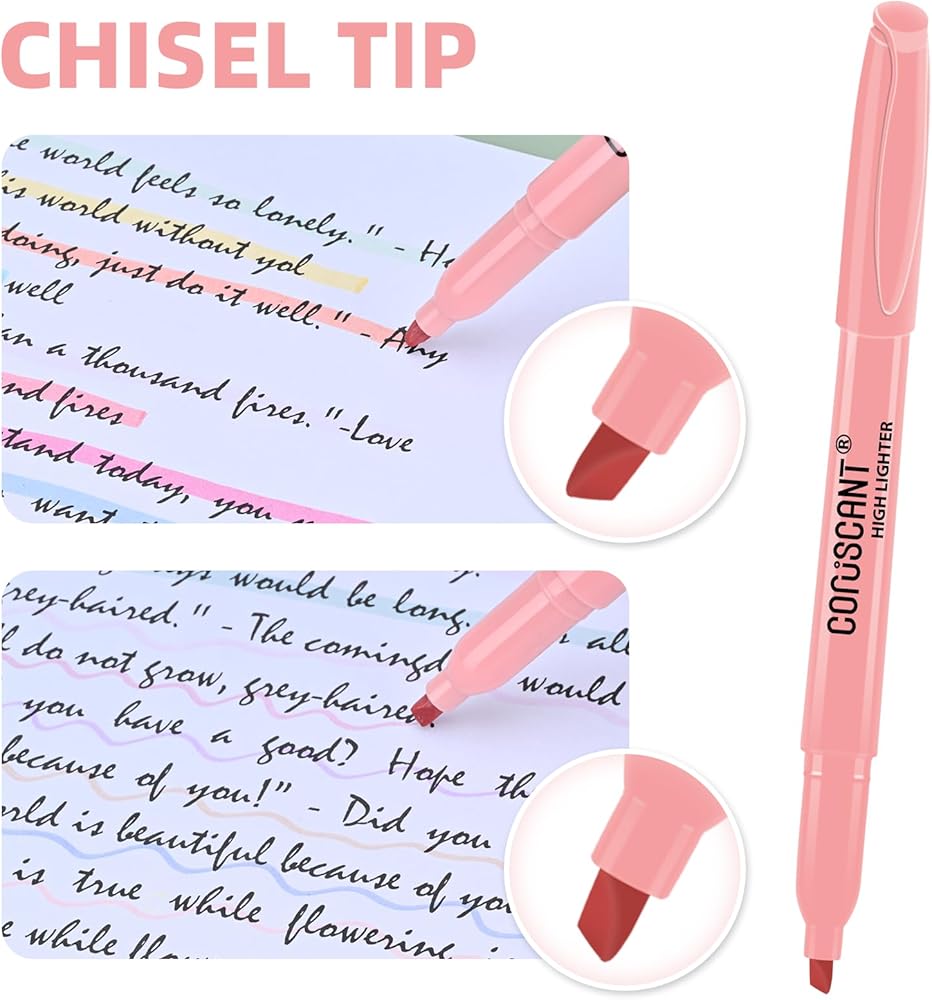 CHISEL TIP
e world feels so lonely." - He
is world without yol
doing, just do it well." - Any
well
an a thousand fires."-Love
nd fires
stand today, you
want
would be long.
grey-haired." - The comingd would
l do not grow, grey-haired.
you have a good? Hope th
because of you!" - Did you
orld is beautiful because of you
is true while flowering
e while flow
CORUSCANT®
HIGH LIGHTER